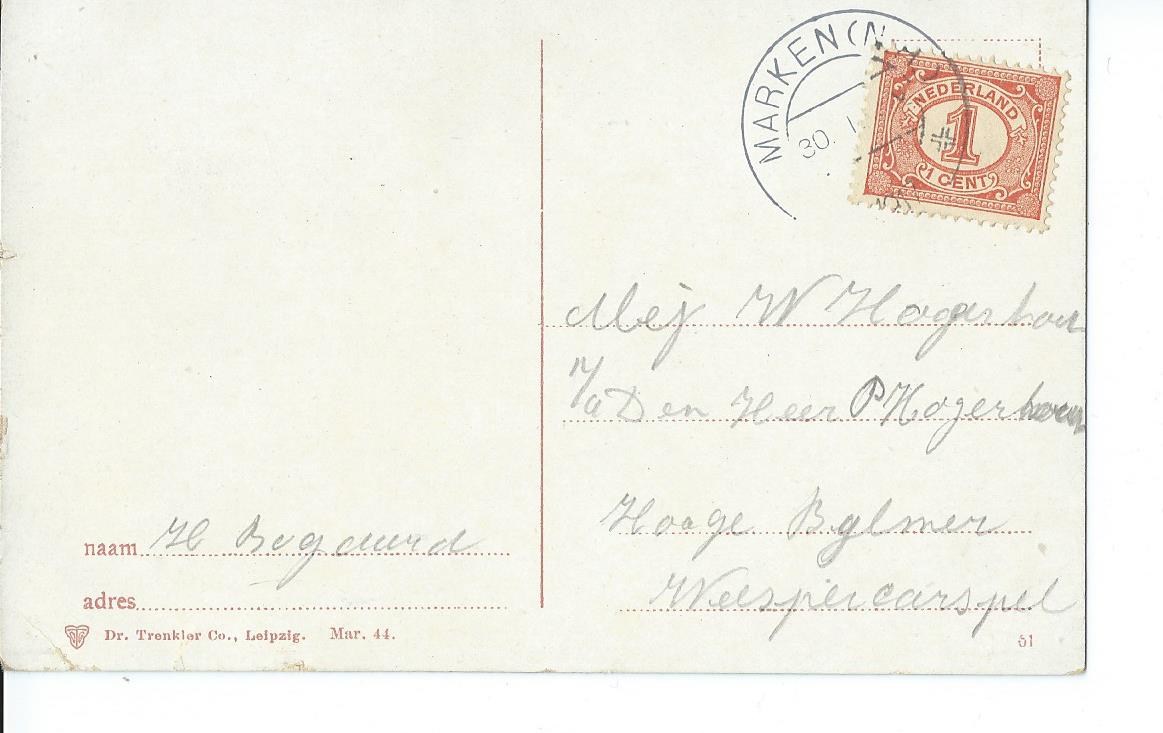 MARKEN (N
30. 1
NEDERLAND
1
1 CENT
Mej W Hogerhou
P/a Den Heer P Hogerhou
Hooge Bylmer
Weespercarspel
naam H Bogaard
adres
Dr. Trenkler Co., Leipzig. Mar. 44.
51